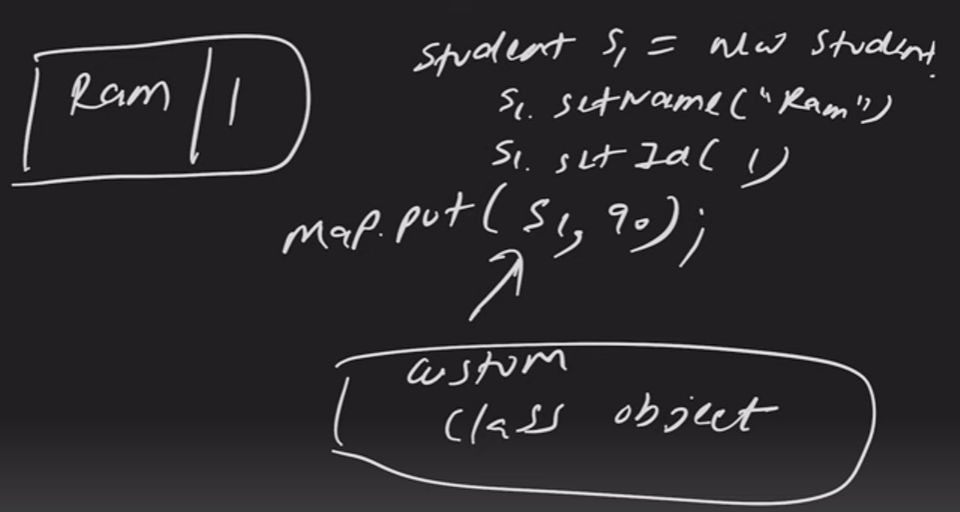 Ram | 1
Student S1 = new Student.
S1. setName("Ram")
S1. setId( 1)
map.put( S1, 90);
custom
class object